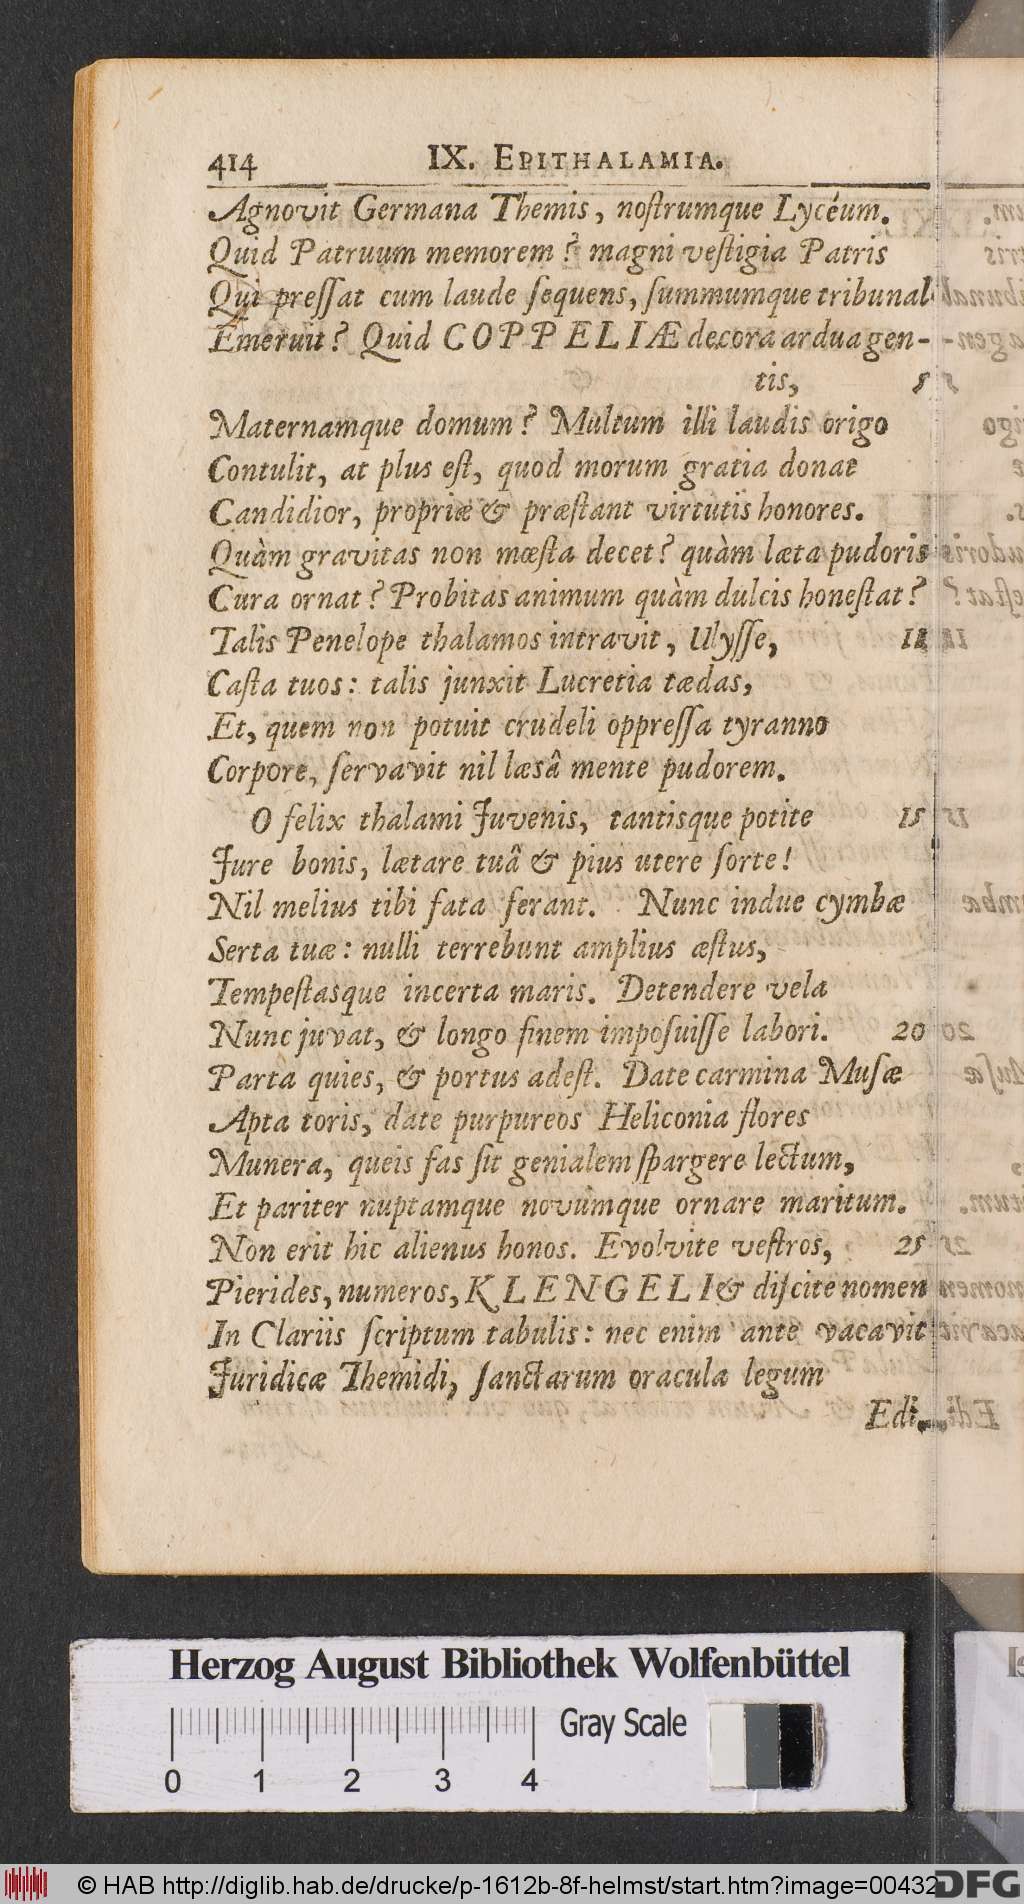 414 IX. EPITHALAMIA.
Agnovit Germana Themis, noſtrumque Lycéum.
Quid Patruum memorem? magni veſtigia Patris
Qui preſſat cum laude ſequens, ſummumque tribunal
Emeruit? Quid COPPELIÆ decora ardua gen-
tis, 5
Maternamque domum? Multum illi laudis origo
Contulit, at plus eſt, quod morum gratia donat
Candidior, propriæ & præſtant virtutis honores.
Quàm gravitas non mœſta decet? quàm læta pudoris
Cura ornat? Probitas animum quàm dulcis honeſtat?
Talis Penelope thalamos intravit, Ulyſſe, 11
Caſta tuos: talis junxit Lucretia tædas,
Et, quem non potuit crudeli oppreſſa tyranno
Corpore, ſervavit nil læsâ mente pudorem.
O felix thalami Juvenis, tantisque potite 15
Jure bonis, lætare tuâ & pius utere ſorte!
Nil melius tibi fata ferant. Nunc indue cymbæ
Serta tuæ: nulli terrebunt amplius æſtus,
Tempeſtasque incerta maris. Detendere vela
Nunc juvat, & longo finem impoſuiſſe labori. 20
Parta quies, & portus adeſt. Date carmina Muſæ
Apta toris, date purpureos Heliconia flores
Munera, queis fas ſit genialem ſpargere lectum,
Et pariter nuptamque novùmque ornare maritum.
Non erit hic alienus honos. Evolvite veſtros, 25
Pierides, numeros, KLENGELI & diſcite nomen
In Clariis ſcriptum tabulis: nec enim ante vacavit
Juridicæ Themidi, ſanctarum oracula legum
Edi-
Herzog August Bibliothek Wolfenbüttel
Gray Scale
0 1 2 3 4
© HAB http://diglib.hab.de/drucke/p-1612b-8f-helmst/start.htm?image=00432
DFG